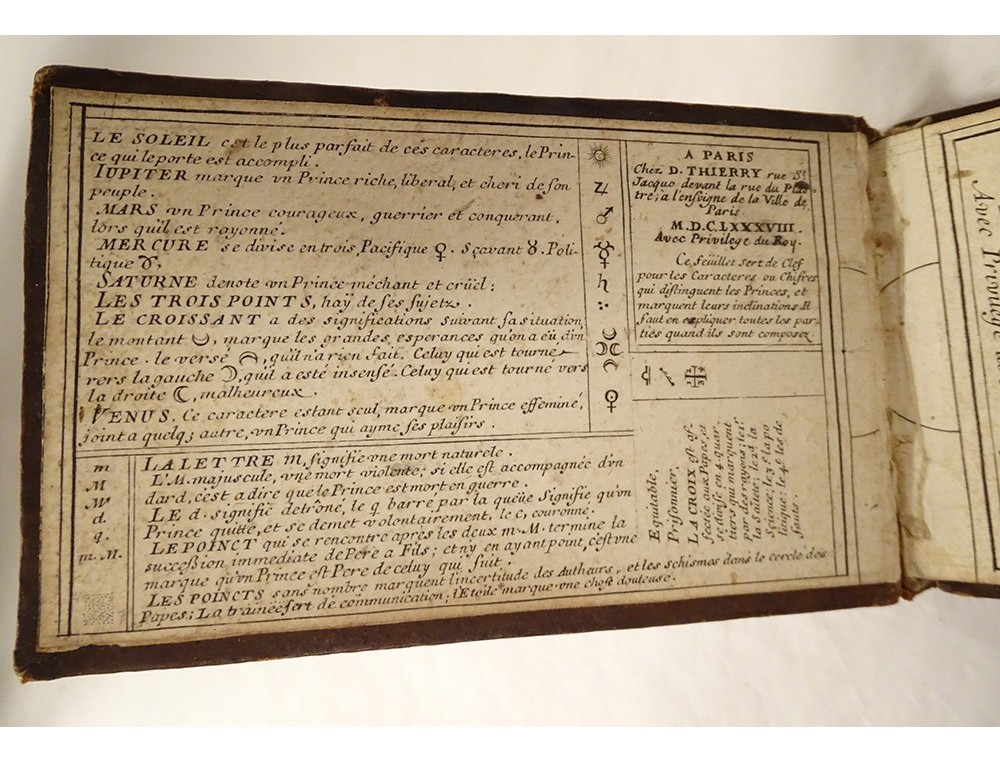 LE SOLEIL est le plus parfait de ces caracteres, le Prin-
ce qui le porte est accompli.
IUPITER marque vn Prince riche, liberal, et cheri de son
peuple.
MARS vn Prince courageux, guerrier et conquerant,
lors qu'il est rayonné.
MERCURE se divise en trois, Pacifique ♀. Sçavant ♉. Poli-
tique ♈.
SATURNE denote vn Prince méchant et crüel:
LES TROIS POINTS, haÿ de ses sujets.
LE CROISSANT a des significations suivant sa situation,
le montant ◡, marque les grandes esperances qu'on a eü d'vn
Prince. le versé ◠, qu'il n'a rien fait. Celuy qui est tourné
vers la gauche ☽, qu'il a esté insensé. Celuy qui est tourné vers
la droite ☾, malheureux.
VENUS. Ce caractere estant seul, marque vn Prince effeminé,
joint a quelqz autre, vn Prince qui ayme ses plaisirs.
☉
♃
♂
☿
♄
∴
◡
☽☾
◠
♀
A PARIS
Chez D. THIERRY rue St.
Jacque devant la rue du Plas
tre, a l'enseigne de la Ville de
Paris.
M.D.C.LXXXVIII.
Avec Privilege du Roy.
Ce feüillet sert de Clef
pour les Caracteres ou Chifres
qui distinguent les Princes, et
marquent leurs inclinations. Il
faut en expliquer toutes les par-
ties quand ils sont composez
Equitable,
Prisonnier,
LA CROIX est af-
fectée aux Papes, et
se divise en 4. quar
tiers qui marquent
par des rayons; le 1.r
la s.ainteté; le 2.e la
science; le 3.e la po
litique; le 4.e les de
fauts.
m
M
M
d.
q.
m. M.
LA LETTRE m, signifie vne mort naturele.
L'M. majuscule, vne mort violente; si elle est accompagnée d'vn
dard, c'est a dire que le Prince est mort en guerre.
LE d. signifie detrône, le q barré par la queüe signifie qu'vn
Prince quitte, et se demet volontairement, le c, couronné.
LE POINCT qui se rencontre après les deux m.M. termine la
succession immediate de Pere a Fils; et n'y en ayant point, c'est vne
marque qu'vn Prince est Pere de celuy qui suit.
LES POINCTS sans nombre marquent l'incertitude des Autheurs, et les schismes dans le cercle des
Papes; La trainée sert de communication; l'Etoile marque vne chose douteuse.
Avec Privilege